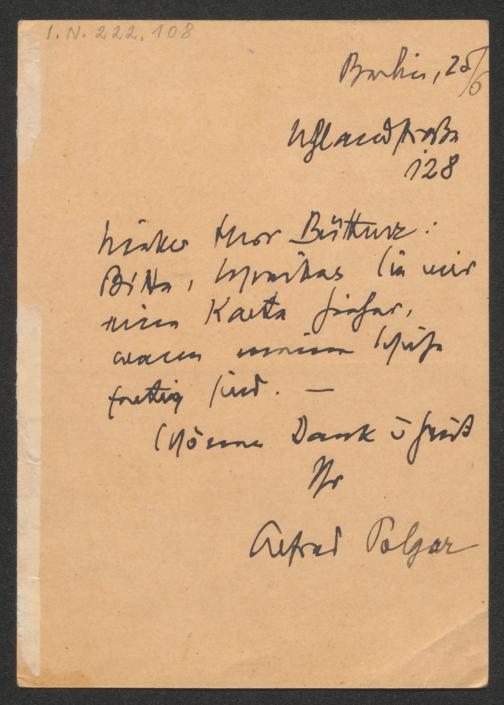 I.N. 222.108
Berlin, 25/6
Uhlandstraße
128
Lieber Herr Büttner:
Bitte, schreiben Sie mir
eine Karte hieher,
wann meine Schuhe
fertig sind. —
Schönen Dank u Gruß
Ihr
Alfred Polgar